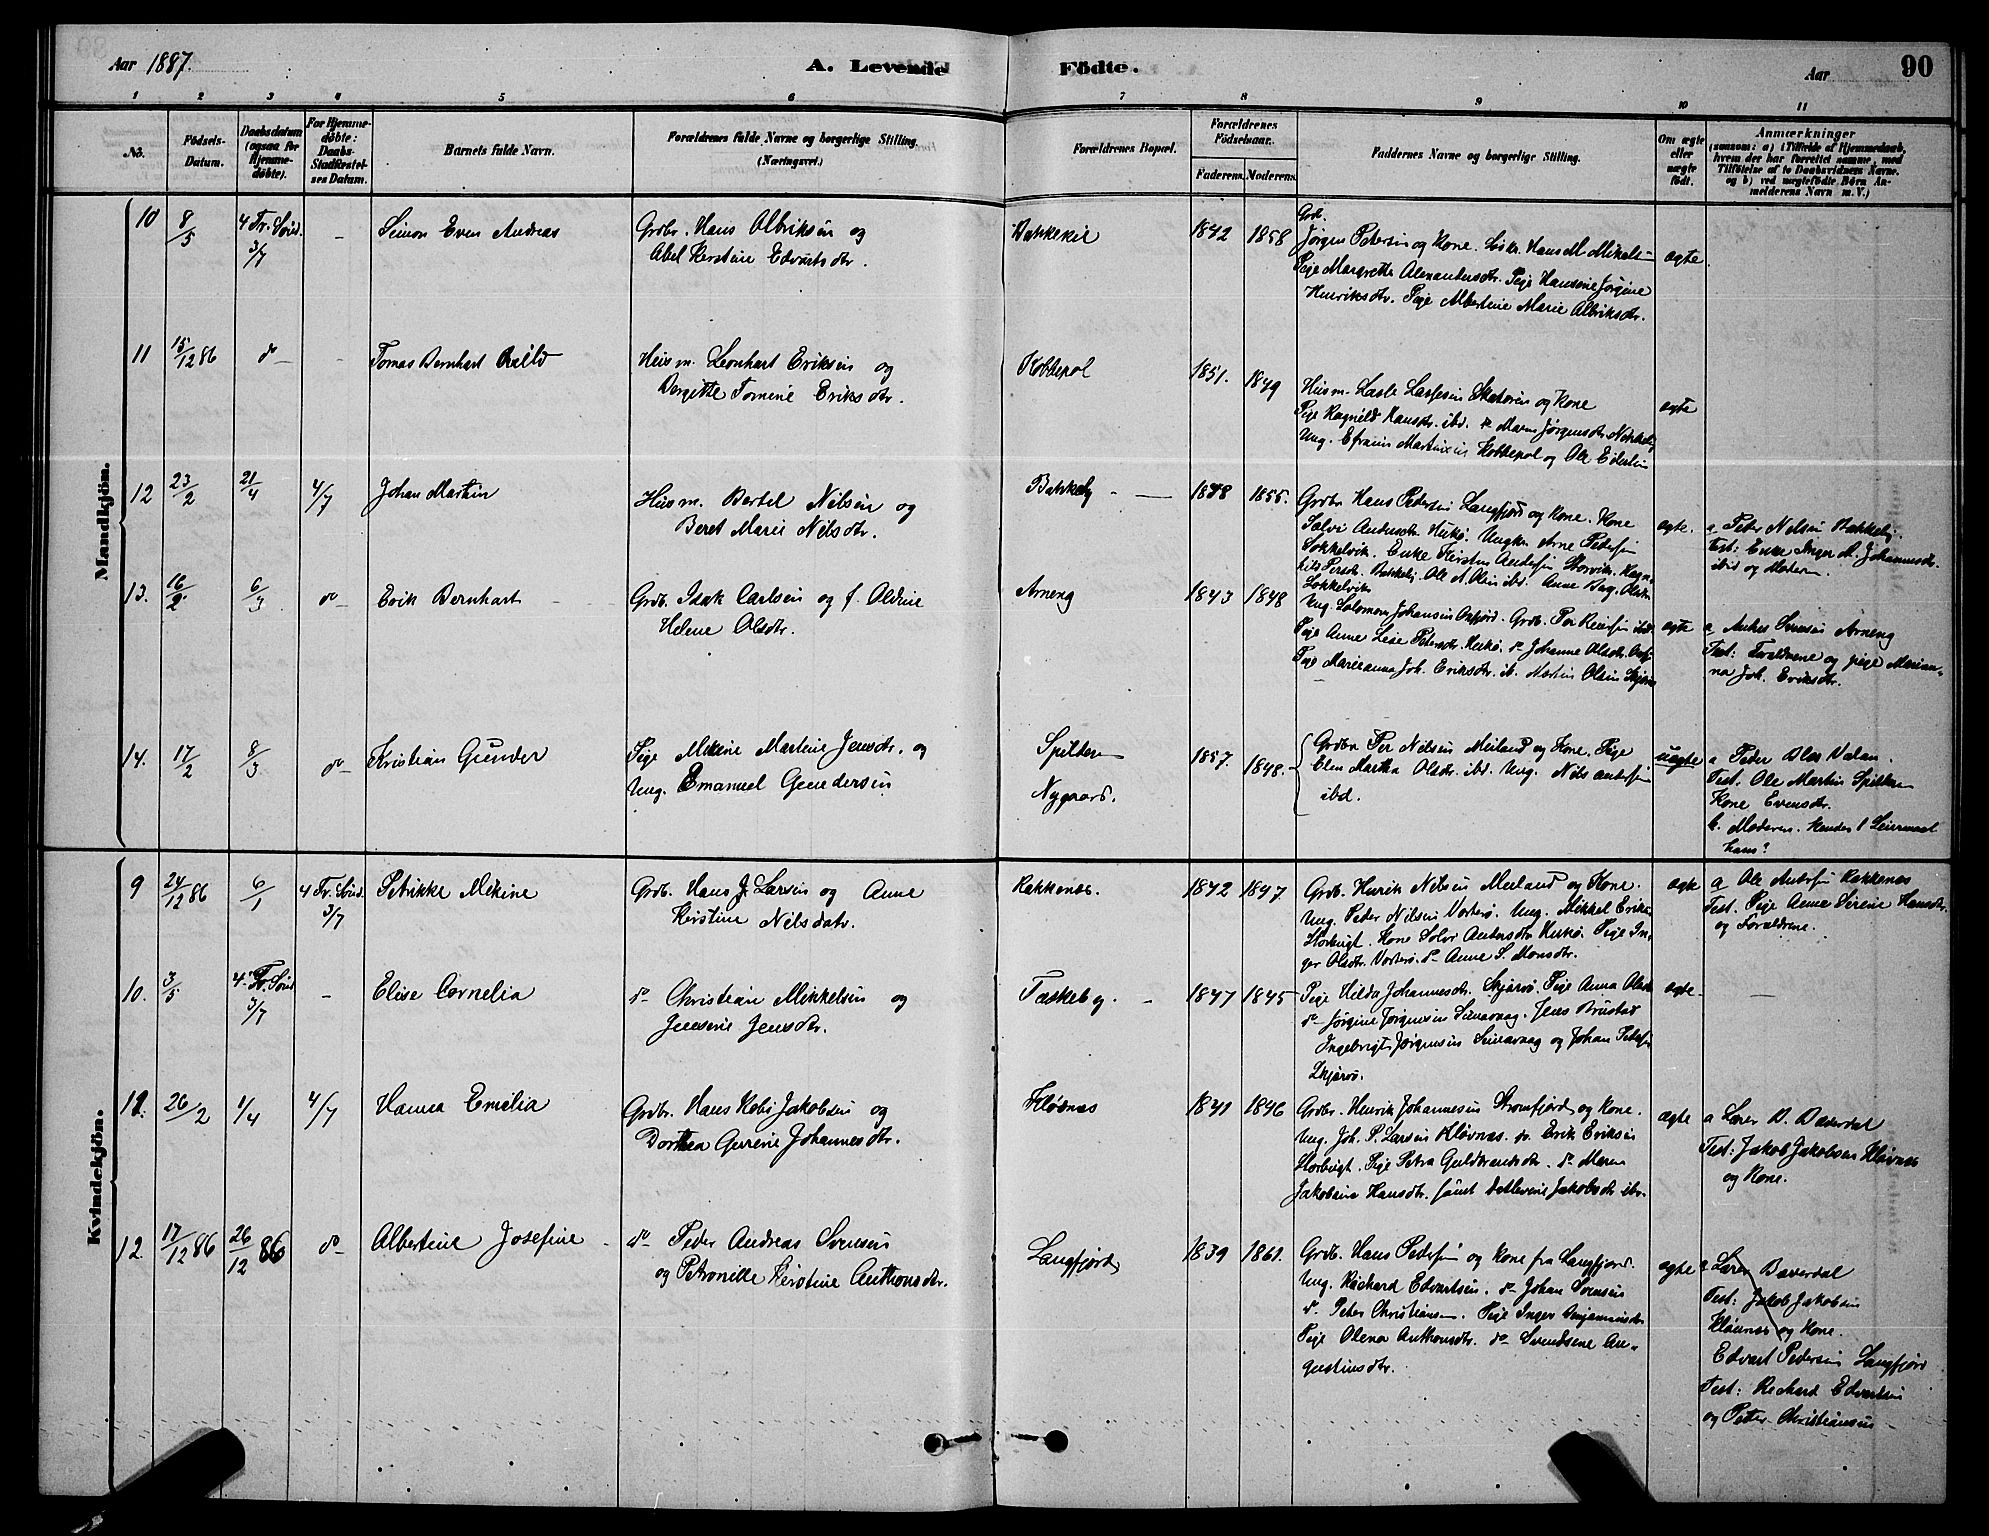 Aar 1887.
A. Levende Födte.
Aar
90
1 2 3 4 5 6 7 8 9 10 11
No.
Födsels-
Datum.
Daabsdatum
(ogsaa for
Hjemme-
døbte).
For Hjemme-
døbte:
Daabs-
Stadfæstel-
ses Datum.
Barnets fulde Navn.
Forældrenes fulde Navne og borgerlige Stilling.
(Næringsvei.)
Forældrenes Bopæl.
Forældrenes
Födselsaar.
Faderens. Moderens.
Faddernes Navne og borgerlige Stilling.
Om ægte
eller
uægte
født.
Anmærkninger
(saasom: a) i Tilfælde af Hjemmedaab,
hvem der har forrettet samme, med
Tilföielse af to Daabsvidners Navne,
og b) ved uægtefødte Börn An-
melderens Navn m. V.)
Mandkjön.
10 8/5 4 Tr. Sönd. 3/7 - Simon Even Andreas
Grdbr. Hans Albriksen og
Abel Kerstine Edvartsdtr.
1842 1858
Grdb.
Jørgen Petersen og Kone. Hans M Mikals-
Pige Margrethe Alexandersdtr. Pige Hansine Jørgine
Henriksdtr. Pige Albertine Marie Albriksdtr.
ægte
11 15/12 86 do - Tomas Bernhart
Husm. Leonhart Eriksen og
Bergitte Tomine Eriksdtr.
Kobbepol
1851. 1849
Husm. Lasse Lassesen og Kone
Pige Ragnild Hansdtr. ibd. Maren Jørgensdtr
Ung. Efraim Martinsen Kobbepol og Ole
ægte
12 23/2 21/4 4/7 Johan Martin
Husm. Bertel Nilsen og
Beret Marie Nilsdtr.
Bakkeby
1848 1855.
Grdbr. Hans Pedersen Langfjord og Kone. Kone
Solvi Andersdtr. Hukø. Ungk. Arne Petersen
Sokkelvik. Enke Kirsten Andersen Storvik.
Persdtr. Bakkeby. Ole A. Olsen ibd. Anne
Sokkelvik
ægte.
a Peter Nilsen Bakkeby.
Test: Enke Inger M. Johannesdtr.
ibid og Moderen.
13. 16/2 6/3 do Erik Bernhart
Grdb. Isak Carlsen og f. Oldine
Helene Olsdtr.
Arneng
1843 1848
Ung. Solomon Johansen. Grdb. Per
Pige Anne Lese Petersdtr. Hukø. do Johanne Olsdtr.
Pige Marieanna Joh. Eriksdtr. ib. Martin Olsen
ægte
a Anders Svensen Arneng
Test: Foraldrene og pige Marian-
na Joh. Eriksdtr.
14. 17/2 8/3 do Kristian Gunder
Pige Mekine Martine Jensdtr. og
Ung. Emanuel Gundersen
Spilderen
Nygaard.
1857. 1848.
Grdbr Per Nilsen Meiland og Kone. Pige
Elen Martha Olsdtr. ibd. Ung. Nils Andersen
ibd.
uægte
a Peder Olsen.
Test. Ole Martin Spilderen
Kone Evensdtr.
b. Moderen. Hendes 1 Leiermaal
hans?
Kvindekjön.
9 24/12 86 6/1 4 Tr. Sönd. 3/7 Petrikke Mikine
Grdb. Hans J. Larsen og Anne
Kerstine Nilsdatr.
Kakkenæs.
1842 1847
Grdb. Henrik Nilsen Meiland og Kone.
Ung. Peter Nilsen Vorterø. Ung. Mikkel Eriks.
Storbugt. Kone Solvi Andersdtr Hukø. Pige In-
ger Olsdtr. Vorterø. do Anne S. Monsdtr.
ægte
a Ole Andersen Kakkenæs
Test. Pige Anne Serine Hansdtr.
og Foraldrene.
10. 3/5 4 Tr. Sönd 3/7 - Elise Cornelia
do Christian Mikkelsen og
Jensine Jensdtr.
Taskeby.
1847 1845
Pige Hilda Johannesdtr. Skjærvø. Pige Anna Olsdtr
do Jørgine Jørgensen. Jens Brustad
Ingebrigt Jørgensen og Johan Petersen
Skjærvø.
ægte
11. 26/2 1/4 4/7 Hanna Emelia
Grdbr. Hans Jakobsen og
Dorthea Gurine Johannesdtr.
Kløvnæs
1841 1846
Grdbr. Henrik Johannesen Strømfjord og Kone.
Ung. Joh. P. Larsen Kløvnæs. do Erik Eriksen
Storbugt. Pige Petra Guldbrandsdtr. do Maren
Jakobine Hansdtr. samt Detlevine Jakobsdtr ibd.
ægte
a Lærer D. Baverdal
Test: Jakob Jakobsen Kløvnæs
og Kone.
12 17/12 86 26/12 86 do Albertine Josefine
do Peder Andreas Svensen
og Petronille Kerstine Anthonsdtr.
Langfjord
1839 1861.
Grdb. Hans Pedersen og Kone fra Langfjord.
Ung. Richard Edvartsen. do Johan Svensen
do Peter Christiansen. Pige Inger Benjaminsdtr
Pige Olena Anthonsdtr. do Svendsene Au-
gustinusdtr.
ægte
a Lærer Baverdal
Test: Jakob Jakobsen
Kløvnæs og Kone.
Edvart Pedersen Langfjord
Test: Richard Edvartsen
og Peter Christiansen